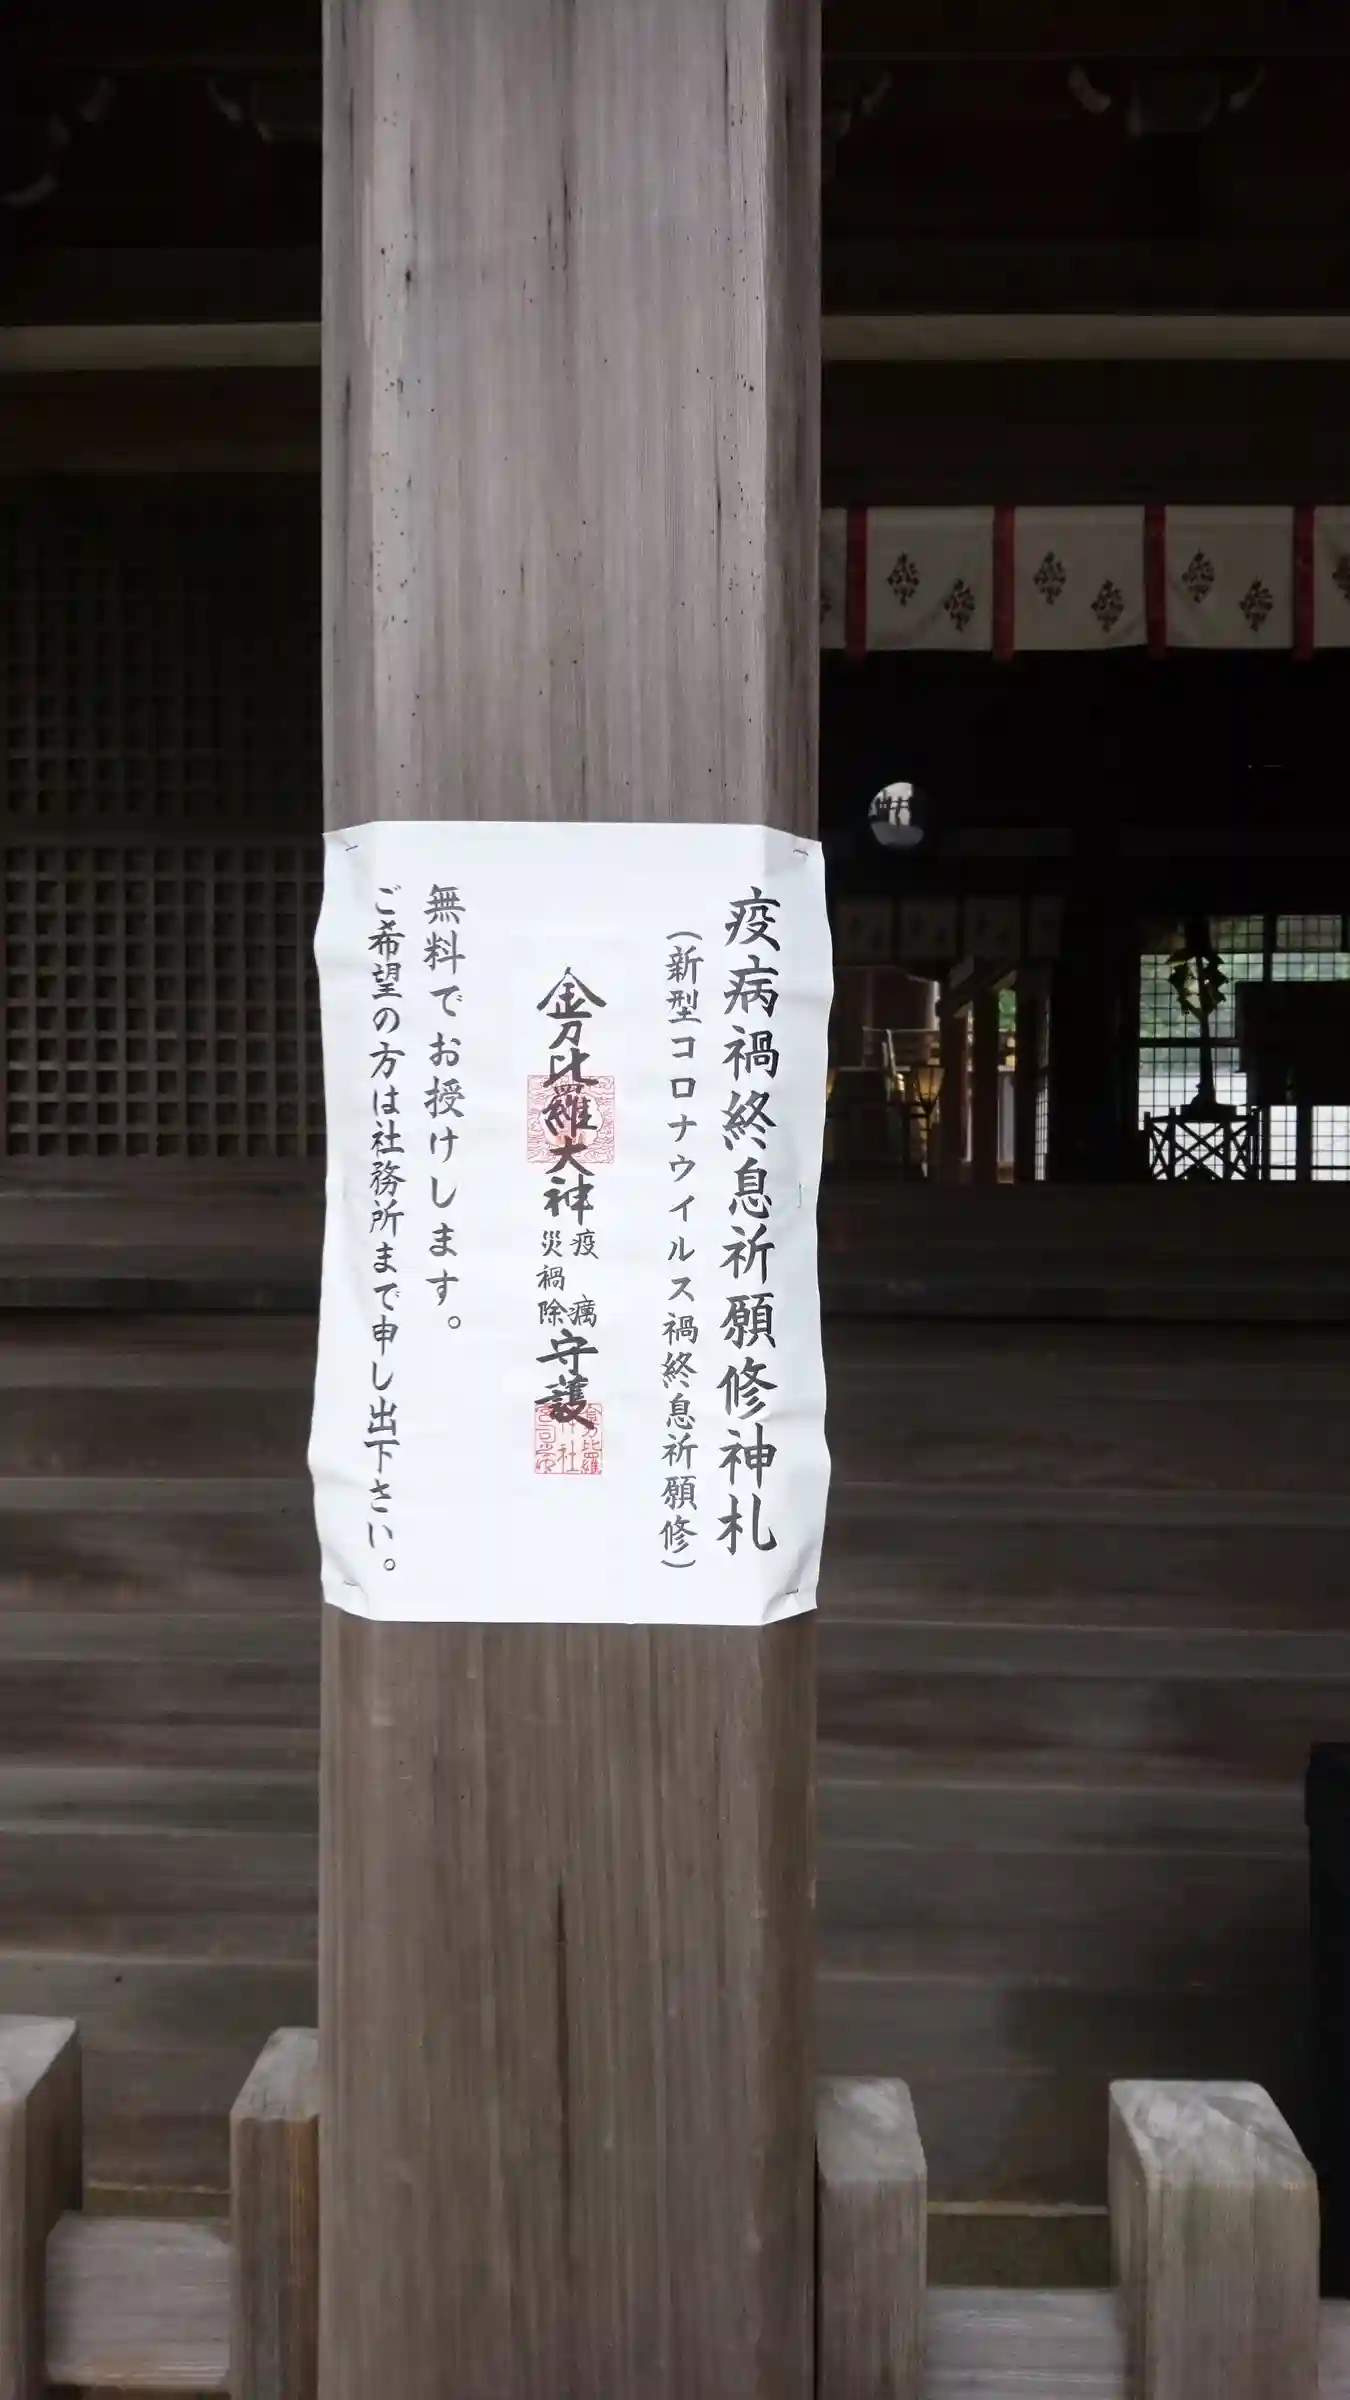 疫病禍終息祈願修神札
(新型コロナウイルス禍終息祈願修)
金刀比羅大神
疫癘
災禍除
守護
無料でお授けします。
ご希望の方は社務所まで申し出下さい。